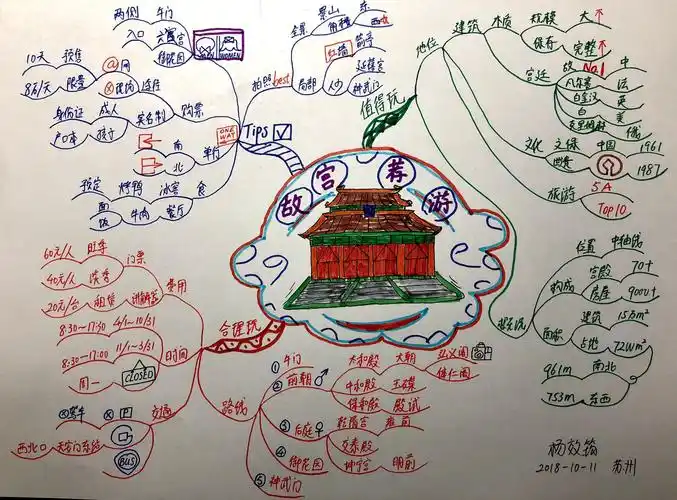 故宫荐游
值得玩
地位
建筑
木质
规模
大
保存
完整
No.1
宫廷
故
中
凡尔赛
法
白金汉
英
白
美
克里姆林
俄
文化
文保
中国
1961
世遗
1987
旅游
5A
Top10
概况
位置
中轴线
构成
宫殿
70+
房屋
9000+
面积
建筑
占地
72W㎡
南北
961m
东西
753m
拍照best
全景
景山
角楼
东
西
局部
红墙
人少
延禧宫
神武门
Tips
两侧
午门
入口
御花园
WOMEN
购票
途径
@网
预售
10天
限量
8万/天
实名制
成人
身份证
孩子
户口本
ONE WAY
单行
南
北
食
冰窖
烤鸭
预定
餐厅
牛肉
面
饭
合理玩
费用
门票
旺季
60元/人
淡季
40元/人
讲解器
租赁
20元/台
时间
4/1~10/31
8:30~17:30
11/1~3/31
8:30~17:00
周一
CLOSED
交通
P
驾车
天安门东站
西北口
BUS
路线
① 午门
② 前朝
太和殿
大朝
弘义阁
体仁阁
中和殿
玉碟
保和殿
殿试
③ 后庭
乾清宫
雍前
交泰殿
坤宁宫
明前
④ 御花园
⑤ 神武门
2018-10-11 苏州